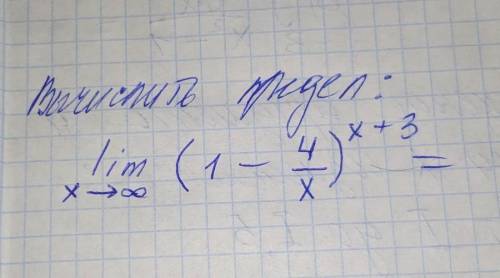 Вычислить предел:
lim x→∞ (1 - 4/x)^(x+3) =